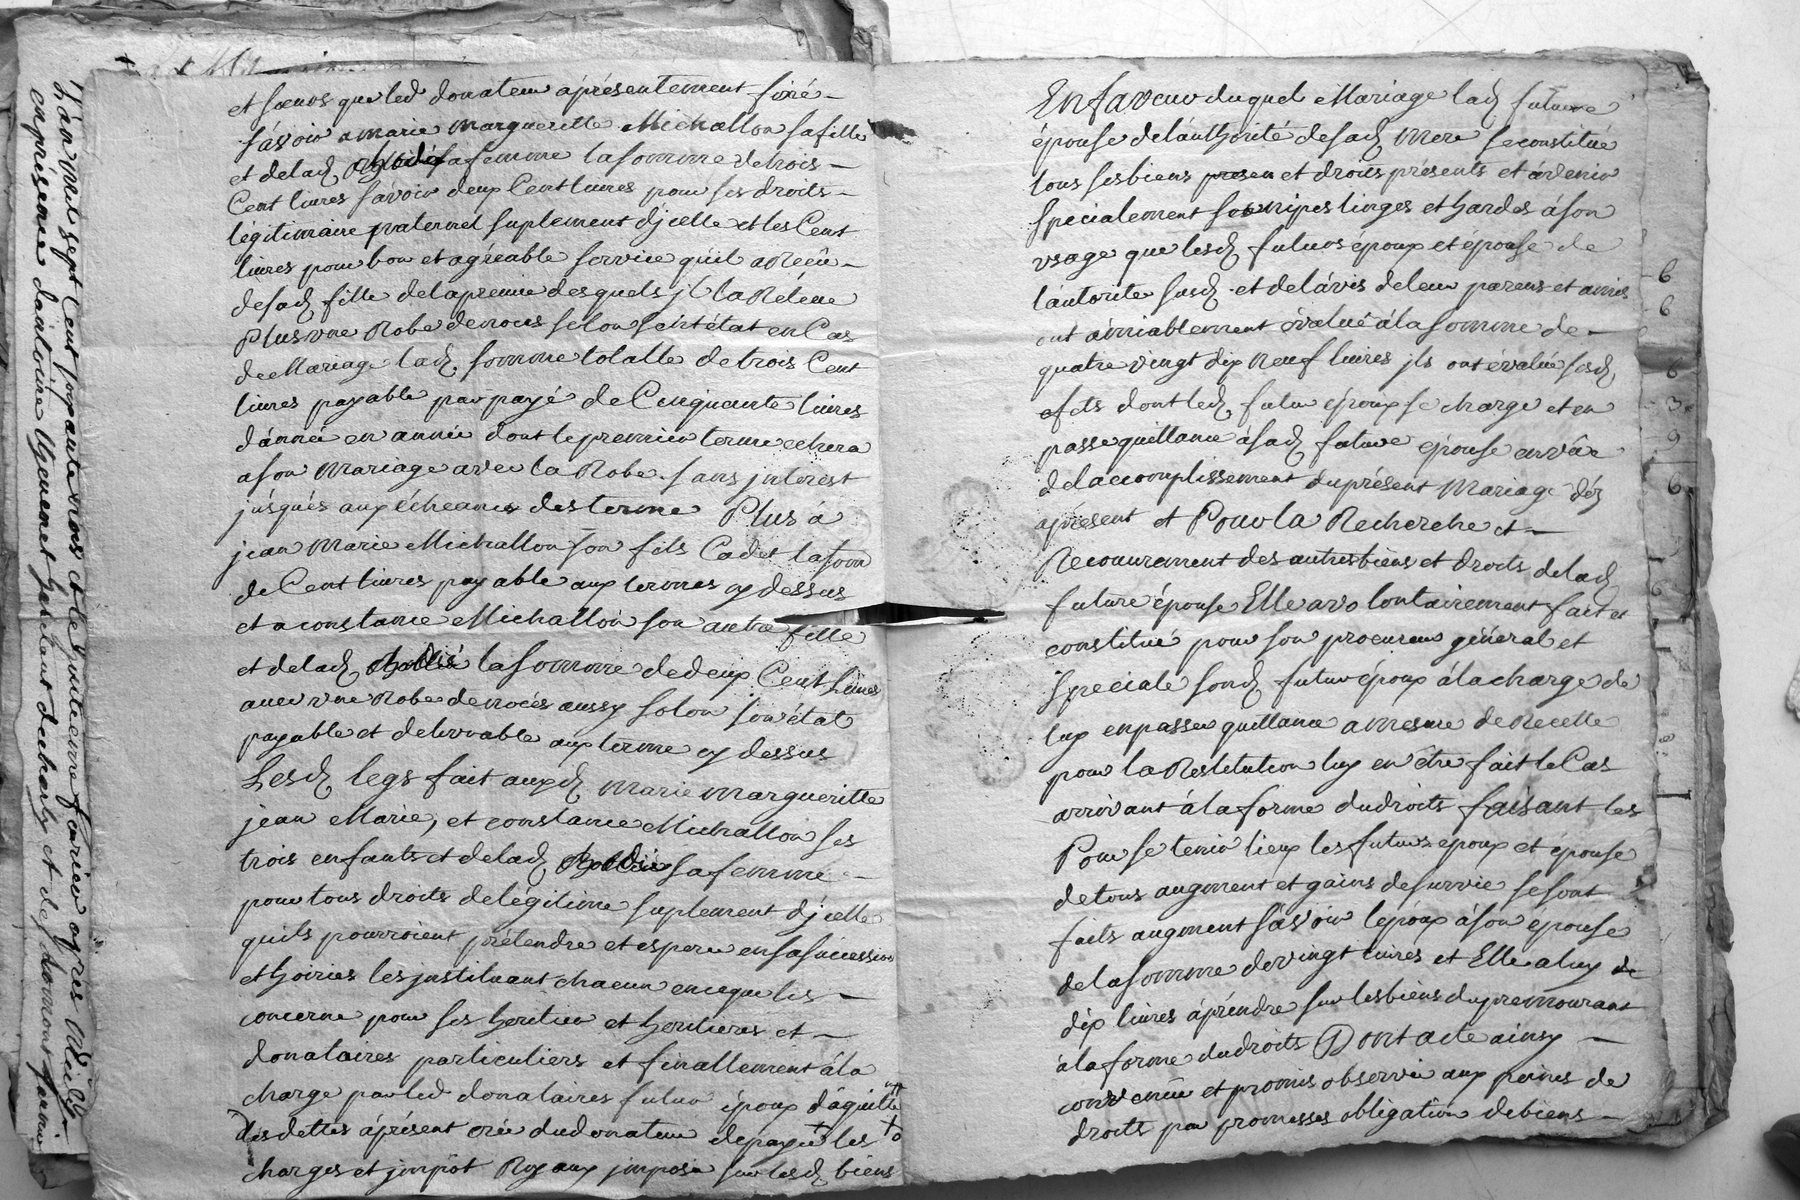 et sœurs que led donateur áprésentement fixé
sávoir a marie margueritte Michallon sa fille
et delad sa femme la somme de trois
Cent livres sávoir deux Cent livres pour ses droits
légitimaire paternel suplement djcelle et les Cent
livres pour bon et agréable service qúil a Reçû
desad fille
Plus vne Robe de noces selon són état en Cas
de Mariage lad somme totalle de trois Cent
livres payable par payé de Cinquante livres
d'année en année dont le premier terme echera
a son Mariage avec la Robe sans jnterest
júsqués aux écheances des terme Plus á
jean Marie Michallon son fils Cadet la som
de Cent livres payable aux termes cy dessus
et a constance Michallon son autre fille
et delad la somme de deux Cent Livres
avec vne Robe de nocés aussy selon són état
payable et delivrable aux terme cy dessus
Lesd legs fait auxd Marie Margueritte
jean Marie, et constance Michallon ses
trois enfants et delad sa femme
pour tous droits de légitime suplement djcelle
quils pourroient prétendre et esperer en sa sucession
et hoiries les jnstituant chacun en ce que les
concerne pour ses heritier et heritieres et
donataires particuliers et finallement á la
charge par led donataires futur époux d'aquitter
des dettes áprésent crée dudonateur depayer les
charges et jmpôt Royaux jmposé sur lesd biens
En faveur duquel Mariage lad future
épouse de láuthorité desad Mere se constitué
tous ses biens presen et droits présents et ávenir
specialement ses nipes linges et hardes á son
vsage que lesd futurs époux et épouse de
láutorite susd et de lávis de leur parens et amis
ont ámiablement évalué á la somme de
quatre vingt dix Neuf livres jls ont évalué sesd
efets dont led futur epoux se charge et en
passe quittance á sad future épouse en vûe
de laccomplissement du présent Mariage déz
apresent et Pour la Recherche et
Recouvrement des autres biens et droits de lad
future épouse Elle a volontairement fait et
constitué pour son procureur général et
speciale sond futur époux á la charge de
luy en passer quittance a mesure de Recette
pour la Restitution luy en étre fait le Cas
arrivant á la forme du droits faisant les
Pour se tenir lieux les futurs epoux et épouse
de tous augment et gains de survie se sont
faits augment sávoir lépoux á son epouse
de la somme de vingt livres et Elle a luy de
dix livres áprendre sur les biens du premourant
á la forme du droits Dont acte ainsy
convenüe et promis observer aux peines de
droits par promesses obligation de biens
L'án mil sept cent soixante trois et le huitieme fevrier après midy
en présence dántoine Guenenet habitant et de
6
6
6
3
9
6
6